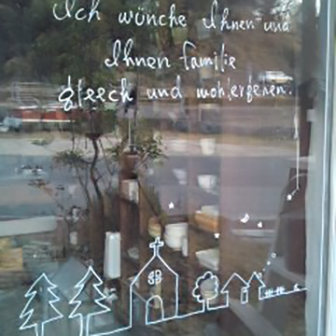 Ich wünche Ihnen und
Ihnen familie
gleech und wohlergehen.